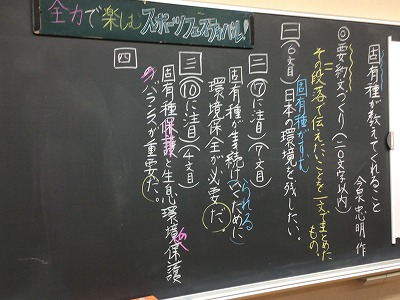 全力で楽しむスポーツフェスティバル!
固有種が教えてくれること
今泉忠明 作
◎要約文づくり(二〇文字以内)
=その段落で伝えたいことを一文でまとめたもの。
一
(6文目)固有種がすむ日本の環境を残したい。
二
(⑦に注目)(7文目)
固有種が生き続けていくために
られる
環境保全が必要だ。
三
(⑩に注目)(4文目)
固有種保護と生息環境保護
の
のバランスが重要だ。
四